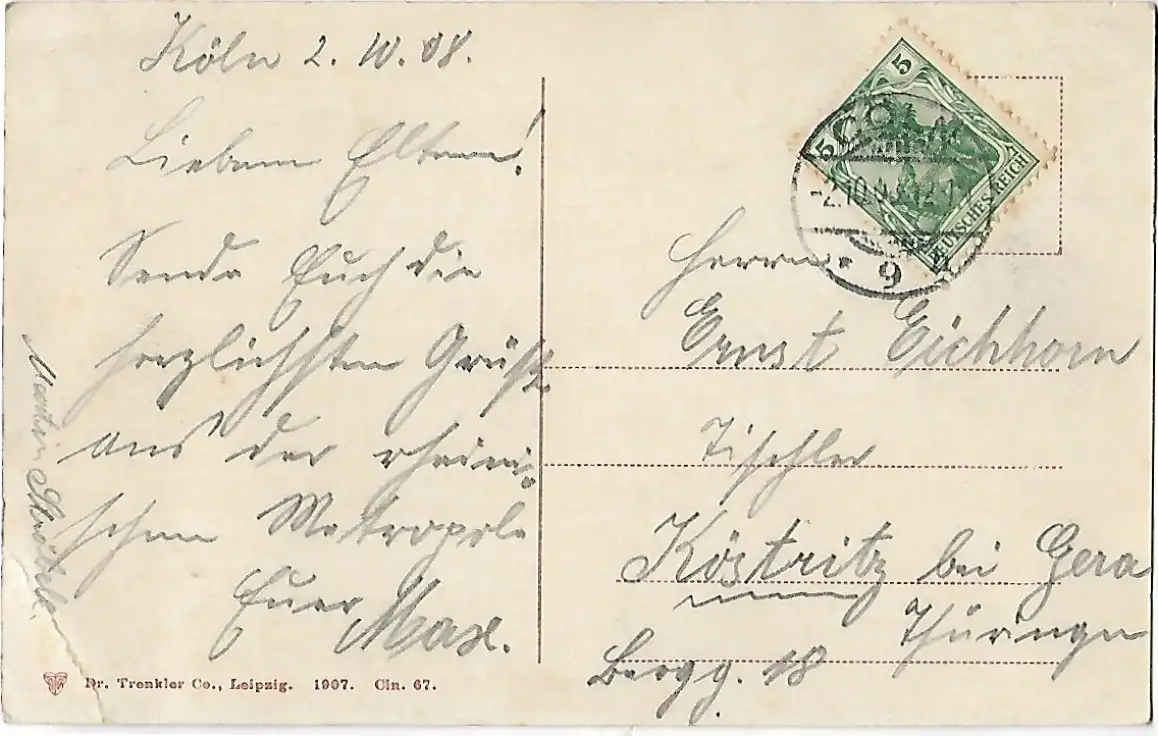 Köln 2. 10. 08.
Lieben Eltern!
Sende Euch die
herzlichsten Grüße
aus der rheini-
schen Metropole
Euer Max.
Martin
Dr. Trenkler Co., Leipzig. 1907. Cin. 67.
5
5
DEUTSCHES REICH
CÖLN
-2.10.08.12-1
* 9
Herrn
Ernst Eichhorn
Tischler
Köstritz bei Gera
Thüringen
Bergg. 18